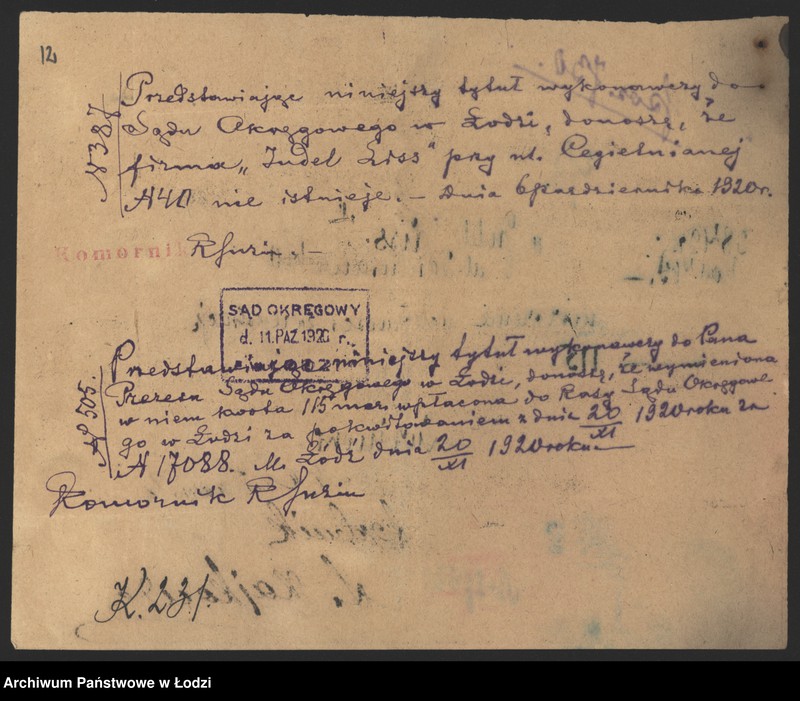 12
N 387
Przedstawiając niniejszy tytuł wykonawczy do
Sądu Okręgowego w Łodzi, donoszę, że
firma „Judel Liss" przy ul. Cegielnianej
N40 nie istnieje. — dnia 6 października 1920 r.
Komornik
SĄD OKRĘGOWY
d. 11. PAŹ. 1920 r.
N 505.
Przedstawiając niniejszy tytuł wykonawczy do Pana
Prezesa Sądu Okręgowego w Łodzi, donoszę, że wymieniona
w niem kwota 115 mar. wpłacona do Kasy Sądu Okręgowe-
go w Łodzi za pokwitowaniem z dnia 20/XI 1920 roku za
N 17088. M. Łódź dnia 20/XI 1920 roku
Komornik
K. 23/.
Archiwum Państwowe w Łodzi